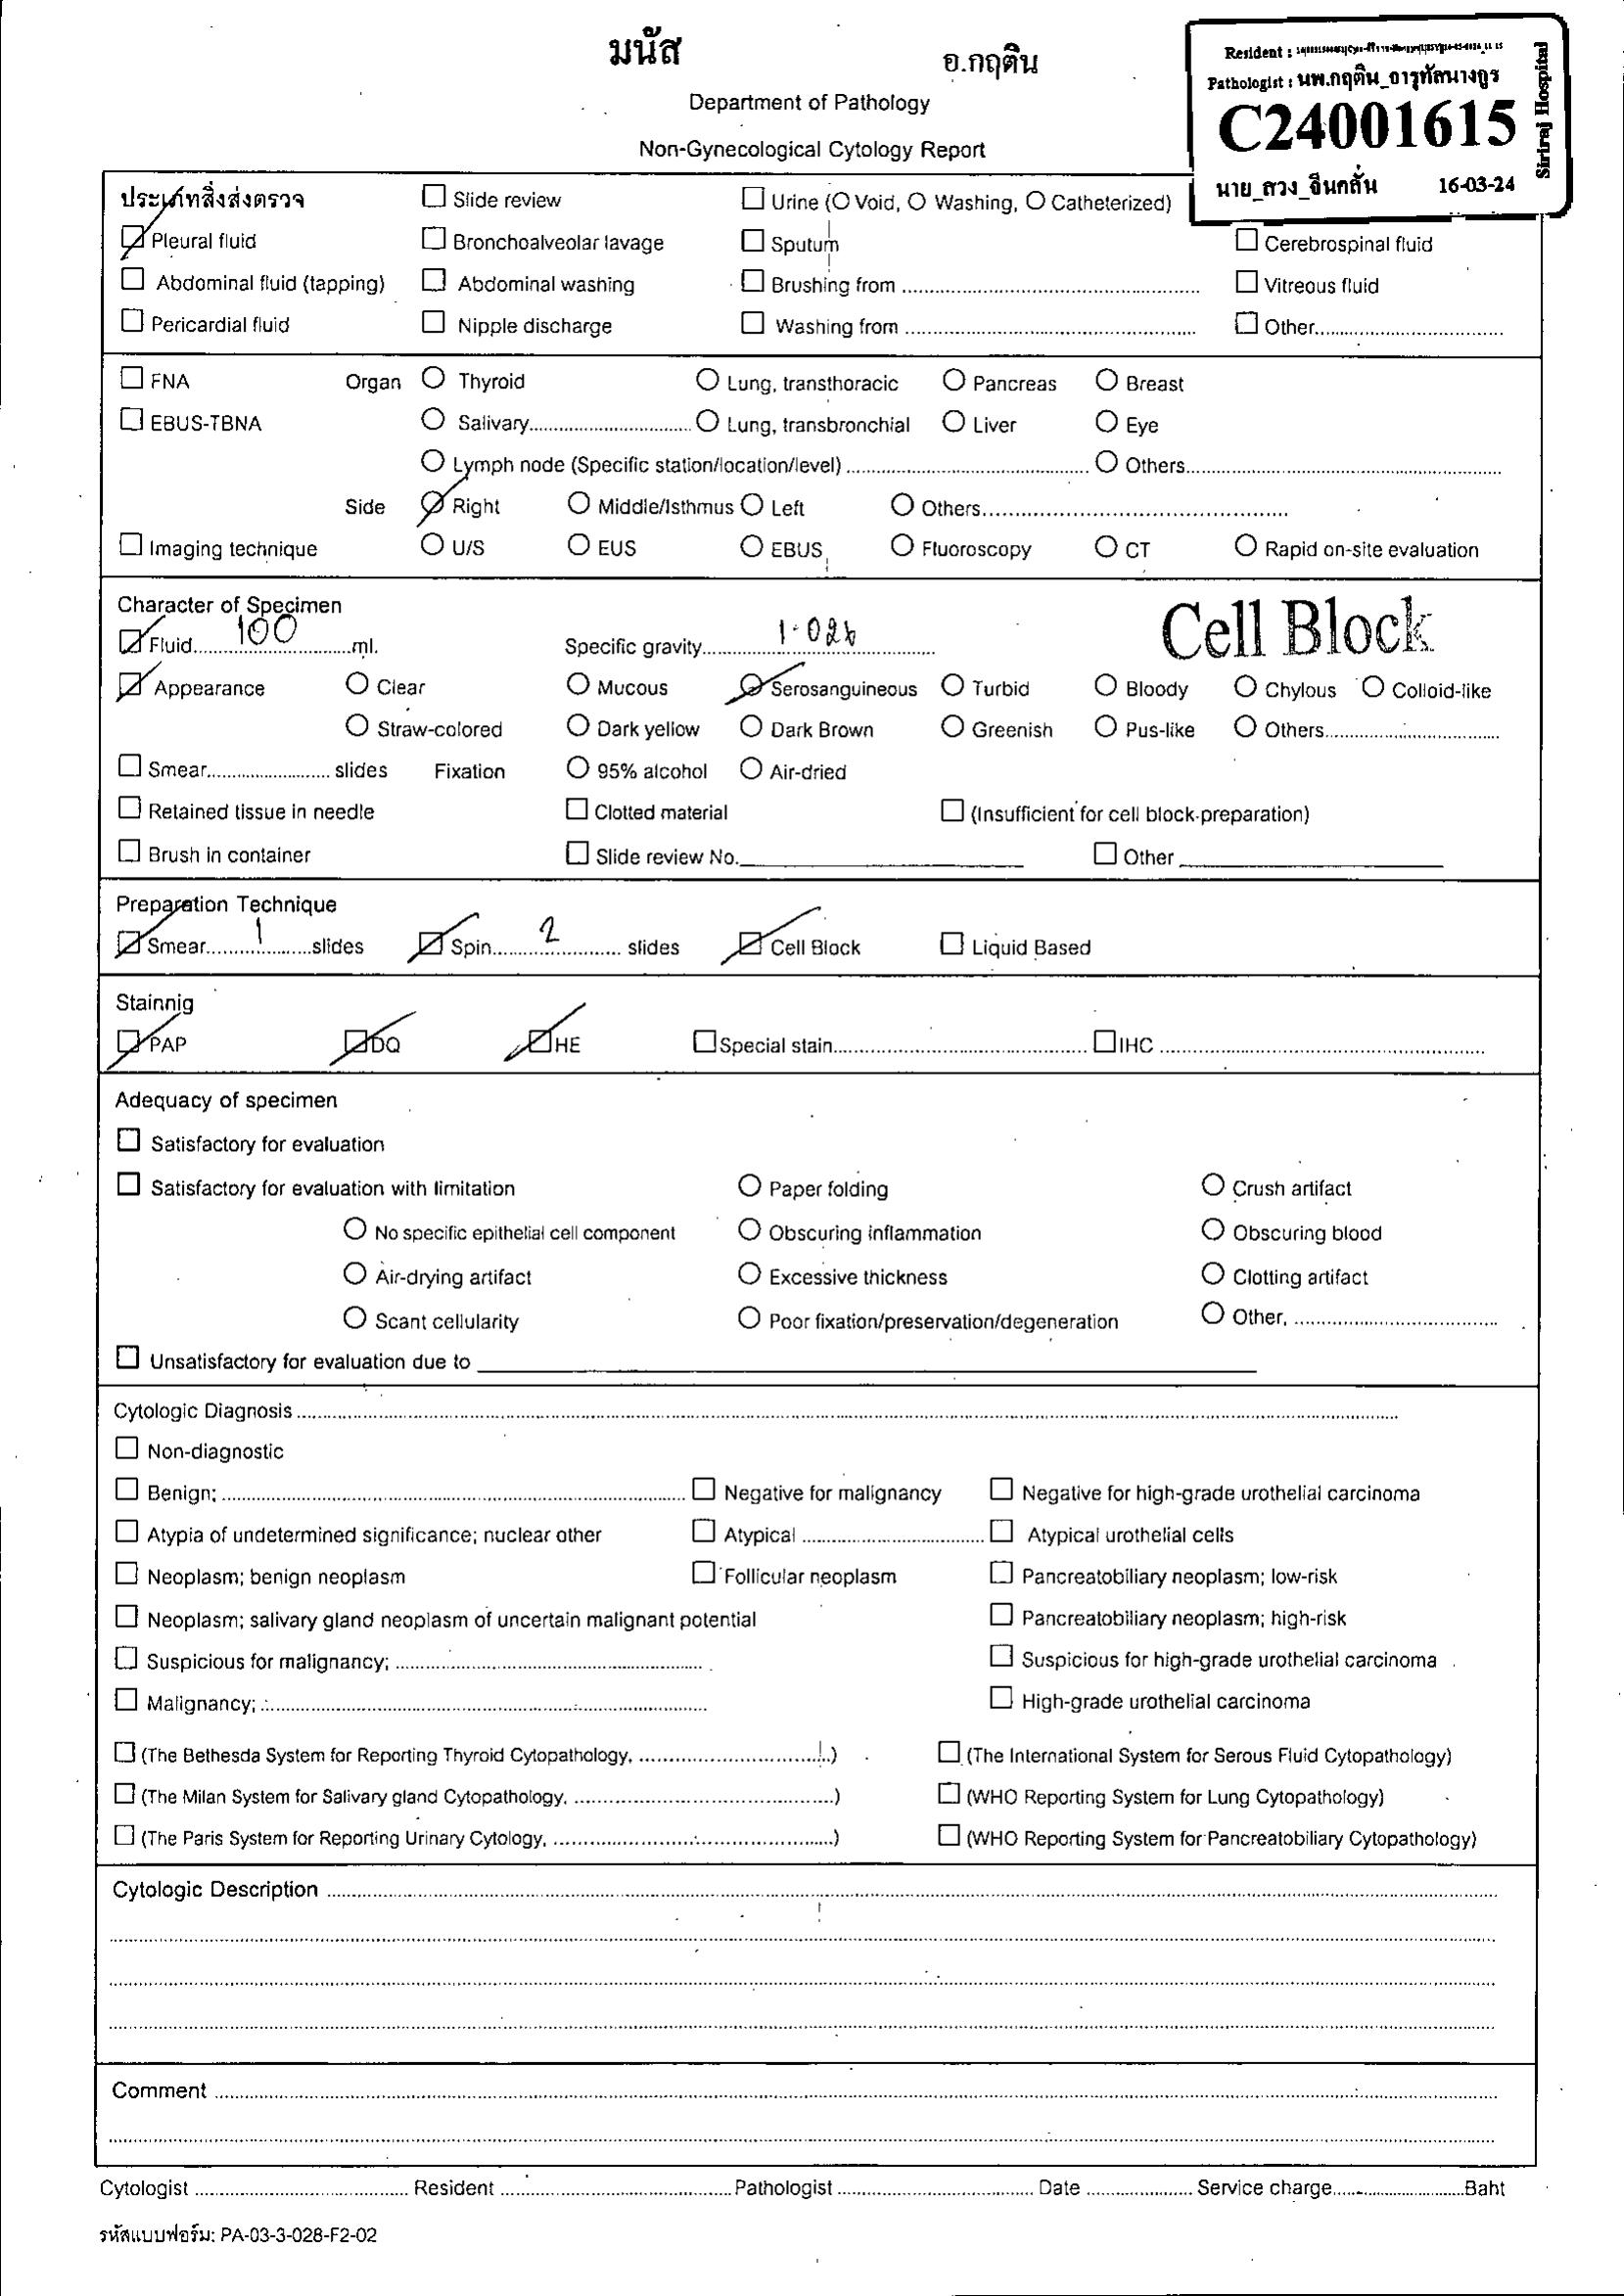 มนัส
อ.กฤติน
Resident :
Pathologist : นพ.กฤติน_อารุทัลนางกูร
C24001615
นาย_ลวง_จีนกลั่น 16-03-24
Siriraj Hospital
Department of Pathology
Non-Gynecological Cytology Report
ประเภทสิ่งส่งตรวจ Slide review Urine (O Void, O Washing, O Catheterized)
Pleural fluid Bronchoalveolar lavage Sputum Cerebrospinal fluid
Abdominal fluid (tapping) Abdominal washing Brushing from .......... Vitreous fluid
Pericardial fluid Nipple discharge Washing from .......... Other..........
FNA Organ Thyroid Lung, transthoracic Pancreas Breast
EBUS-TBNA Salivary.......... Lung, transbronchial Liver Eye
Lymph node (Specific station/location/level) .......... Others..........
Side Right Middle/Isthmus Left Others..........
Imaging technique U/S EUS EBUS Fluoroscopy CT Rapid on-site evaluation
Character of Specimen
Cell Block
Fluid.....100.....ml. Specific gravity.....1.026.....
Appearance Clear Mucous Serosanguineous Turbid Bloody Chylous Colloid-like
Straw-colored Dark yellow Dark Brown Greenish Pus-like Others..........
Smear.......... slides Fixation 95% alcohol Air-dried
Retained tissue in needle Clotted material (Insufficient for cell block preparation)
Brush in container Slide review No.__________ Other __________
Preparation Technique
Smear.....1.....slides Spin.....2..... slides Cell Block Liquid Based
Stainnig
PAP DQ HE Special stain.......... IHC ..........
Adequacy of specimen
Satisfactory for evaluation
Satisfactory for evaluation with limitation Paper folding Crush artifact
No specific epithelial cell component Obscuring inflammation Obscuring blood
Air-drying artifact Excessive thickness Clotting artifact
Scant cellularity Poor fixation/preservation/degeneration Other, ..........
Unsatisfactory for evaluation due to __________
Cytologic Diagnosis ..........
Non-diagnostic
Benign; .......... Negative for malignancy Negative for high-grade urothelial carcinoma
Atypia of undetermined significance; nuclear other Atypical .......... Atypical urothelial cells
Neoplasm; benign neoplasm Follicular neoplasm Pancreatobiliary neoplasm; low-risk
Neoplasm; salivary gland neoplasm of uncertain malignant potential Pancreatobiliary neoplasm; high-risk
Suspicious for malignancy; .......... Suspicious for high-grade urothelial carcinoma
Malignancy; .......... High-grade urothelial carcinoma
(The Bethesda System for Reporting Thyroid Cytopathology, ..........) (The International System for Serous Fluid Cytopathology)
(The Milan System for Salivary gland Cytopathology, ..........) (WHO Reporting System for Lung Cytopathology)
(The Paris System for Reporting Urinary Cytology, ..........) (WHO Reporting System for Pancreatobiliary Cytopathology)
Cytologic Description ..........
Comment ..........
Cytologist .......... Resident .......... Pathologist .......... Date .......... Service charge..........Baht
รหัสแบบฟอร์ม: PA-03-3-028-F2-02